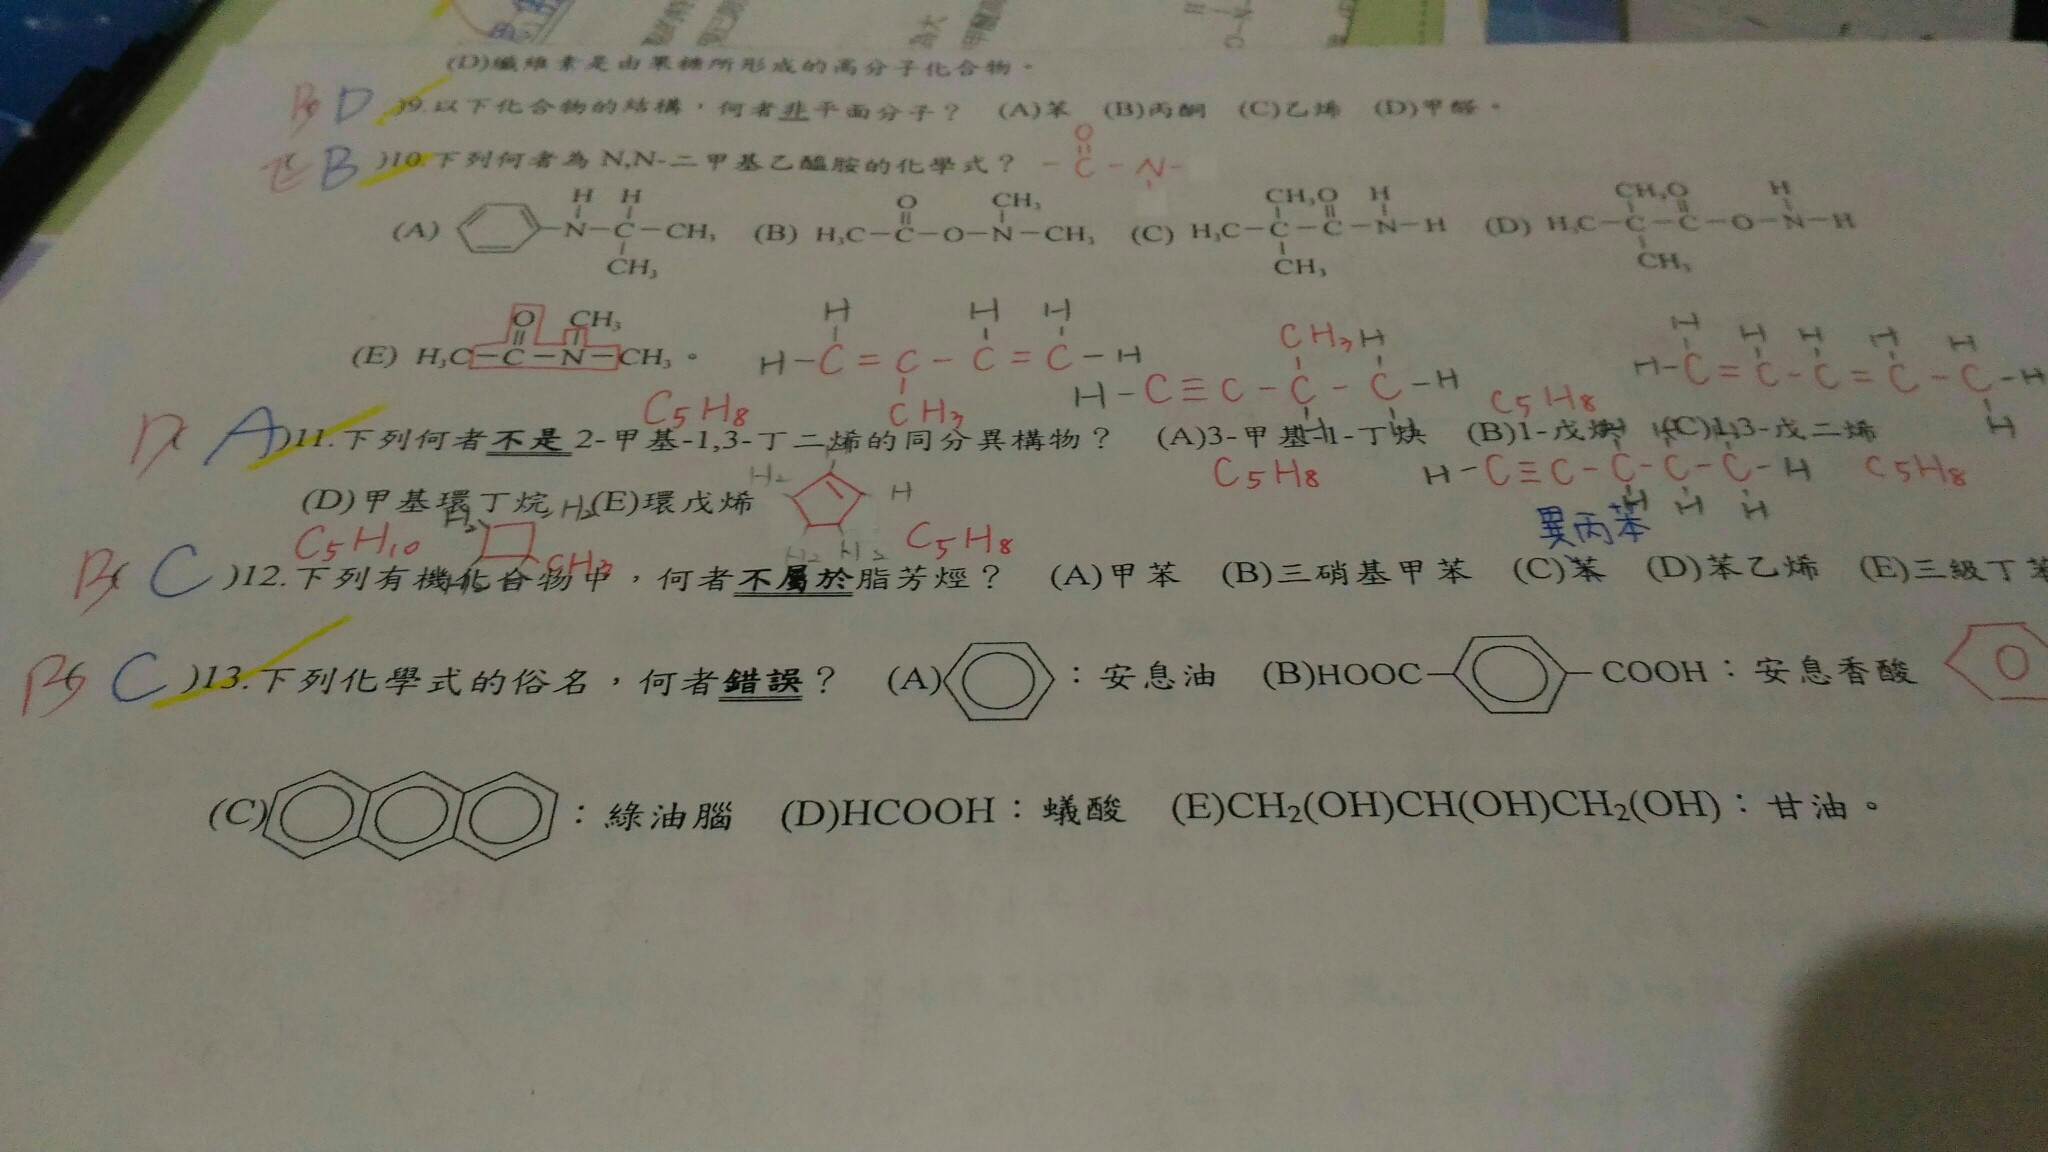 (D)纖維素是由果糖所形成的高分子化合物。
B D )9.以下化合物的結構，何者非平面分子？ (A)苯 (B)丙酮 (C)乙烯 (D)甲醛。
E B )10.下列何者為 N,N-二甲基乙醯胺的化學式？ O - C - N -
H H CH₃ CH₃ O H CH₃ O H
(A) N—C—CH₃ (B) H₃C—C—O—N—CH₃ (C) H₃C—C—C—N—H (D) H₃C—C—C—O—N—H
CH₃ CH₃ CH₃
O CH₃ H H H CH₃ H H H H H H
(E) H₃C—C—N—CH₃。 H-C=C-C=C-H H-C≡C-C-C-H H-C=C-C=C-C-H
C₅H₈ CH₃ C₅H₈ H
D A )11.下列何者不是 2-甲基-1,3-丁二烯的同分異構物？ (A)3-甲基-1-丁炔 (B)1-戊炔 (C)1,3-戊二烯
C₅H₈ H-C≡C-C-C-C-H C₅H₈
(D)甲基環丁烷 (E)環戊烯 H₂ H H H H
C₅H₁₀ H₂ H₂ CH₃ H₂ H₂ C₅H₈ 異丙苯
B C )12.下列有機化合物中，何者不屬於脂芳烴？ (A)甲苯 (B)三硝基甲苯 (C)苯 (D)苯乙烯 (E)三級丁苯
B C )13.下列化學式的俗名，何者錯誤？ (A)：安息油 (B)HOOC— —COOH：安息香酸
(C)：綠油腦 (D)HCOOH：蟻酸 (E)CH₂(OH)CH(OH)CH₂(OH)：甘油。